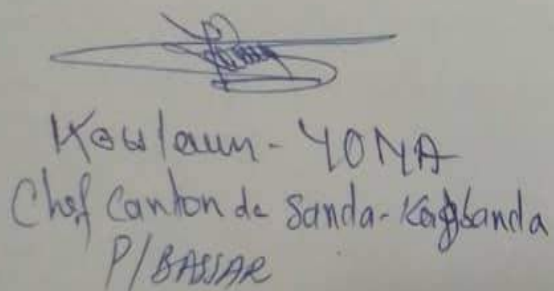 Kowlaun - YOMA
Chef Canton de Sanda-Kagbanda
P/BASSAR